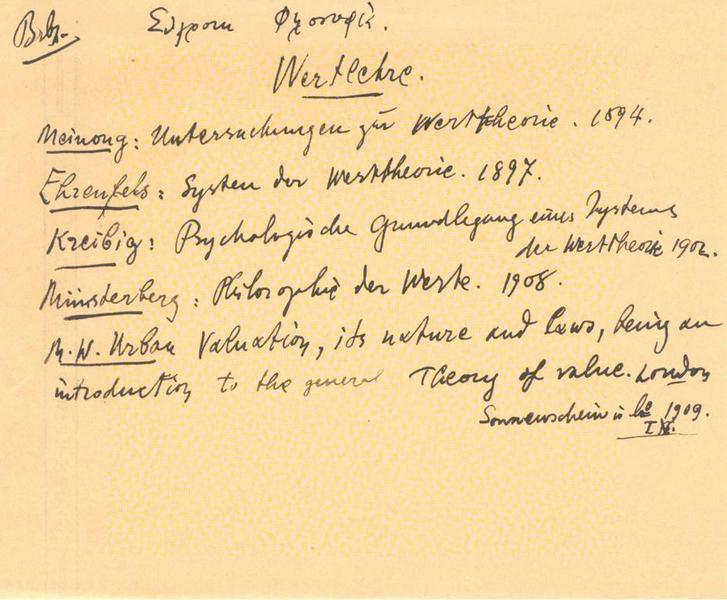 Σύγχρονη Φιλοσοφία.
Wertlehre.
Meinong: Untersuchungen zur Werttheorie. 1894.
Ehrenfels: System der Werttheorie. 1897.
Kreibig: Psychologische Grundlegung eines Systems
der Werttheorie 1902.
Münsterberg: Philosophie der Werte. 1908.
M. W. Urban Valuation, its nature and laws, being an
introduction to the general Theory of value. London
Sonnenschein 1909.